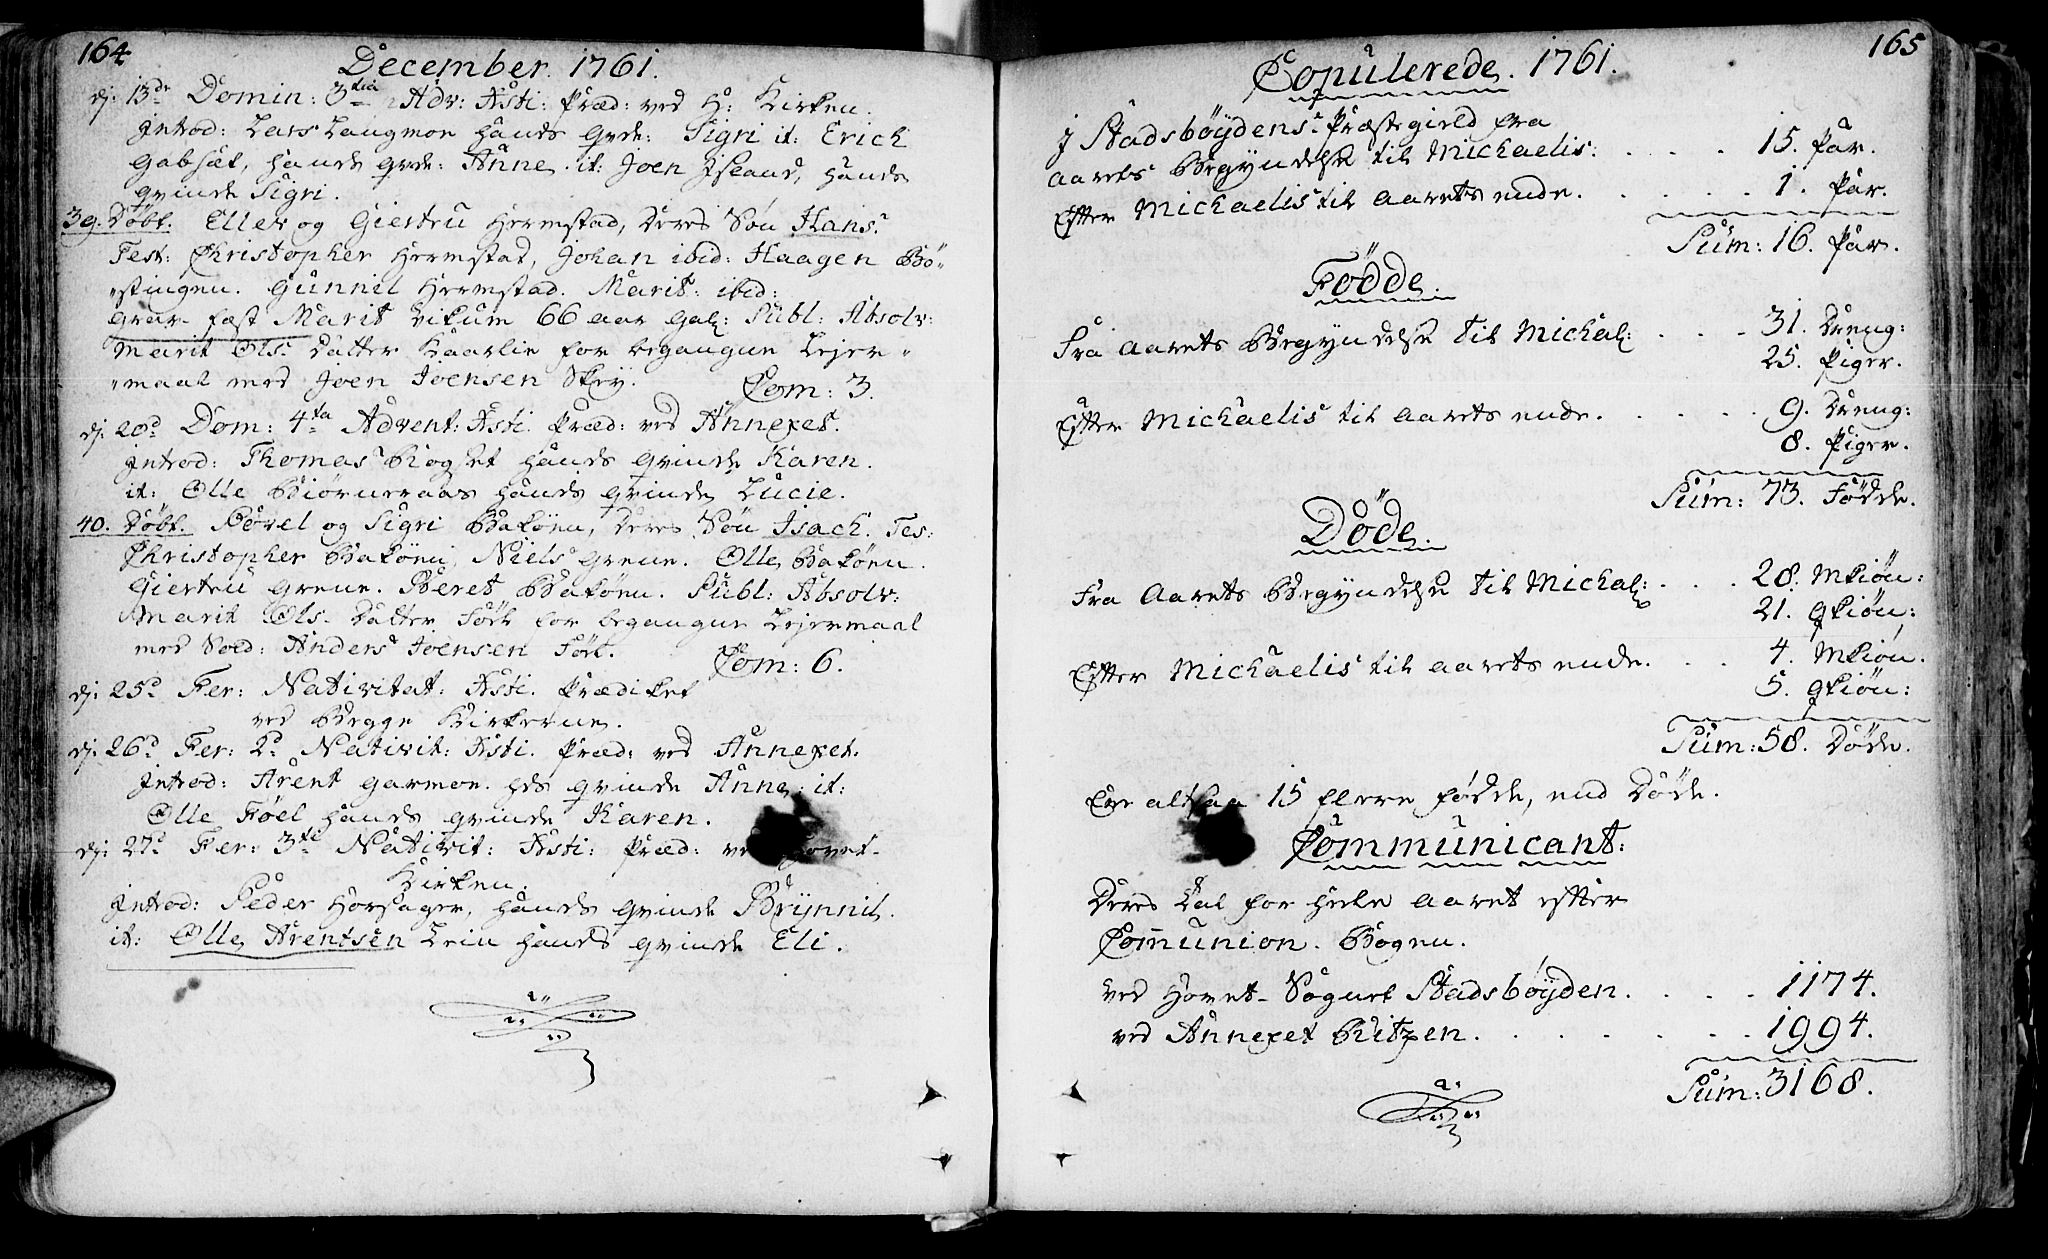 164
December. 1761.
dj: 13de Domin: 3tia Adv: Xsti: Præd: ved H: Kirken.
Introd: Lars Langmoe hands Qvde: Sigri it: Erich
hands Qvde: Anne. it: Joen hands
qvinde Sigri.
39. Døbt. Eller og Giertru Hermstad, deres Søn Hans.
Test: Christopher Hermstad, Johan ibid: Haagen Bö„
„stingen. Gunnil Hermstad. Marit ibid:
Grav-fæst Marit Vikum 66 aar gal: Publ: Absolv:
Marit Ols: Datter Kaarlie for begangne Lejer„
„maal med Joen Joensen Com: 3.
dj: 20d Dom: 4ta Advent: Xsti. Præd: ved Annexet.
Introd: Thomas hands qvinde Karen.
it: Olle Biørneraas hands qvinde Lucie.
40. Døbt. Povel og Sigri Bakøen, deres Søn Isach. Tes:
Christopher Bakøen, Niels Grene. Olle Bakøen.
Giertru Grene. Beret Bakøen. Publ: Absolv:
Marit Ols. Datter for begangne Lejermaal
med Sold: Anders Joensen Com: 6.
dj: 25d Fer: Nativitat: Xsti. Prædiket
ved Begge Kirkerne.
dj: 26d Fer: 2d Nativit: Xsti. Præd: ved Annexet.
Introd: Arent Garmoe. hds qvinde Anne. it:
Olle hands qvinde Karen.
dj: 27d Fer: 3tie Nativit: Xsti: Præd: ved Hovet-
Kirken.
Introd: Peder Horsager, hands qvinde Brynnil.
it: Olle Arentsen Lein hands qvinde Eli.
165
Copulerede. 1761.
J Stadsbøydens Præstegield fra
aarets Begyndelse til Michaelis: . . . 15. Par.
Efter Michaelis til aarets ende. . . . . 1. Par.
Sum: 16. Par.
Fødde.
Fra aarets Begyndelse til Michal: . . . 31. Dreng:
25. Piger.
Efter Michaelis til aarets ende. . . . . 9. Dreng:
8. Piger.
Sum: 73. Fødde.
Døde.
Fra Aarets Begyndelse til Michal: . . . 28. Mkiøn:
21. qkiøn:
Efter Michaelis til aarets ende. . . 4. Mkiøn.
5. qkiøn:
Sum: 58. Døde.
Ere altsaa 15 flere fødde, end Døde.
Communicant:
Deres Tal for hele aaret efter
Com̄union. Bogen.
ved Hovet-Sognet Stadsbøyden. . . . . 1174.
ved Annexet Ritzen. . . . . . . 1994.
Sum: 3168.